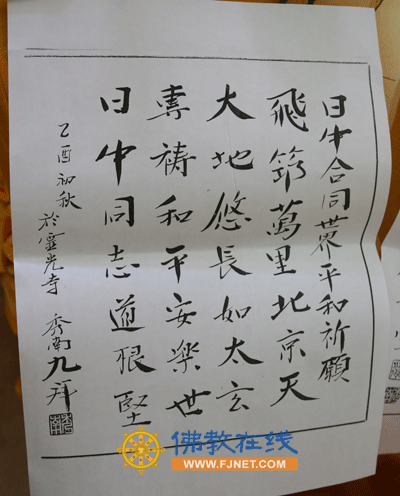 日中合同世界平和祈願
飛筇萬里北京天
大地悠長如太玄
専祷和平安樂世
日中同志道根堅
乙酉初秋
於霊光寺 秀南九拜
佛教在线
WWW.FJNET.COM